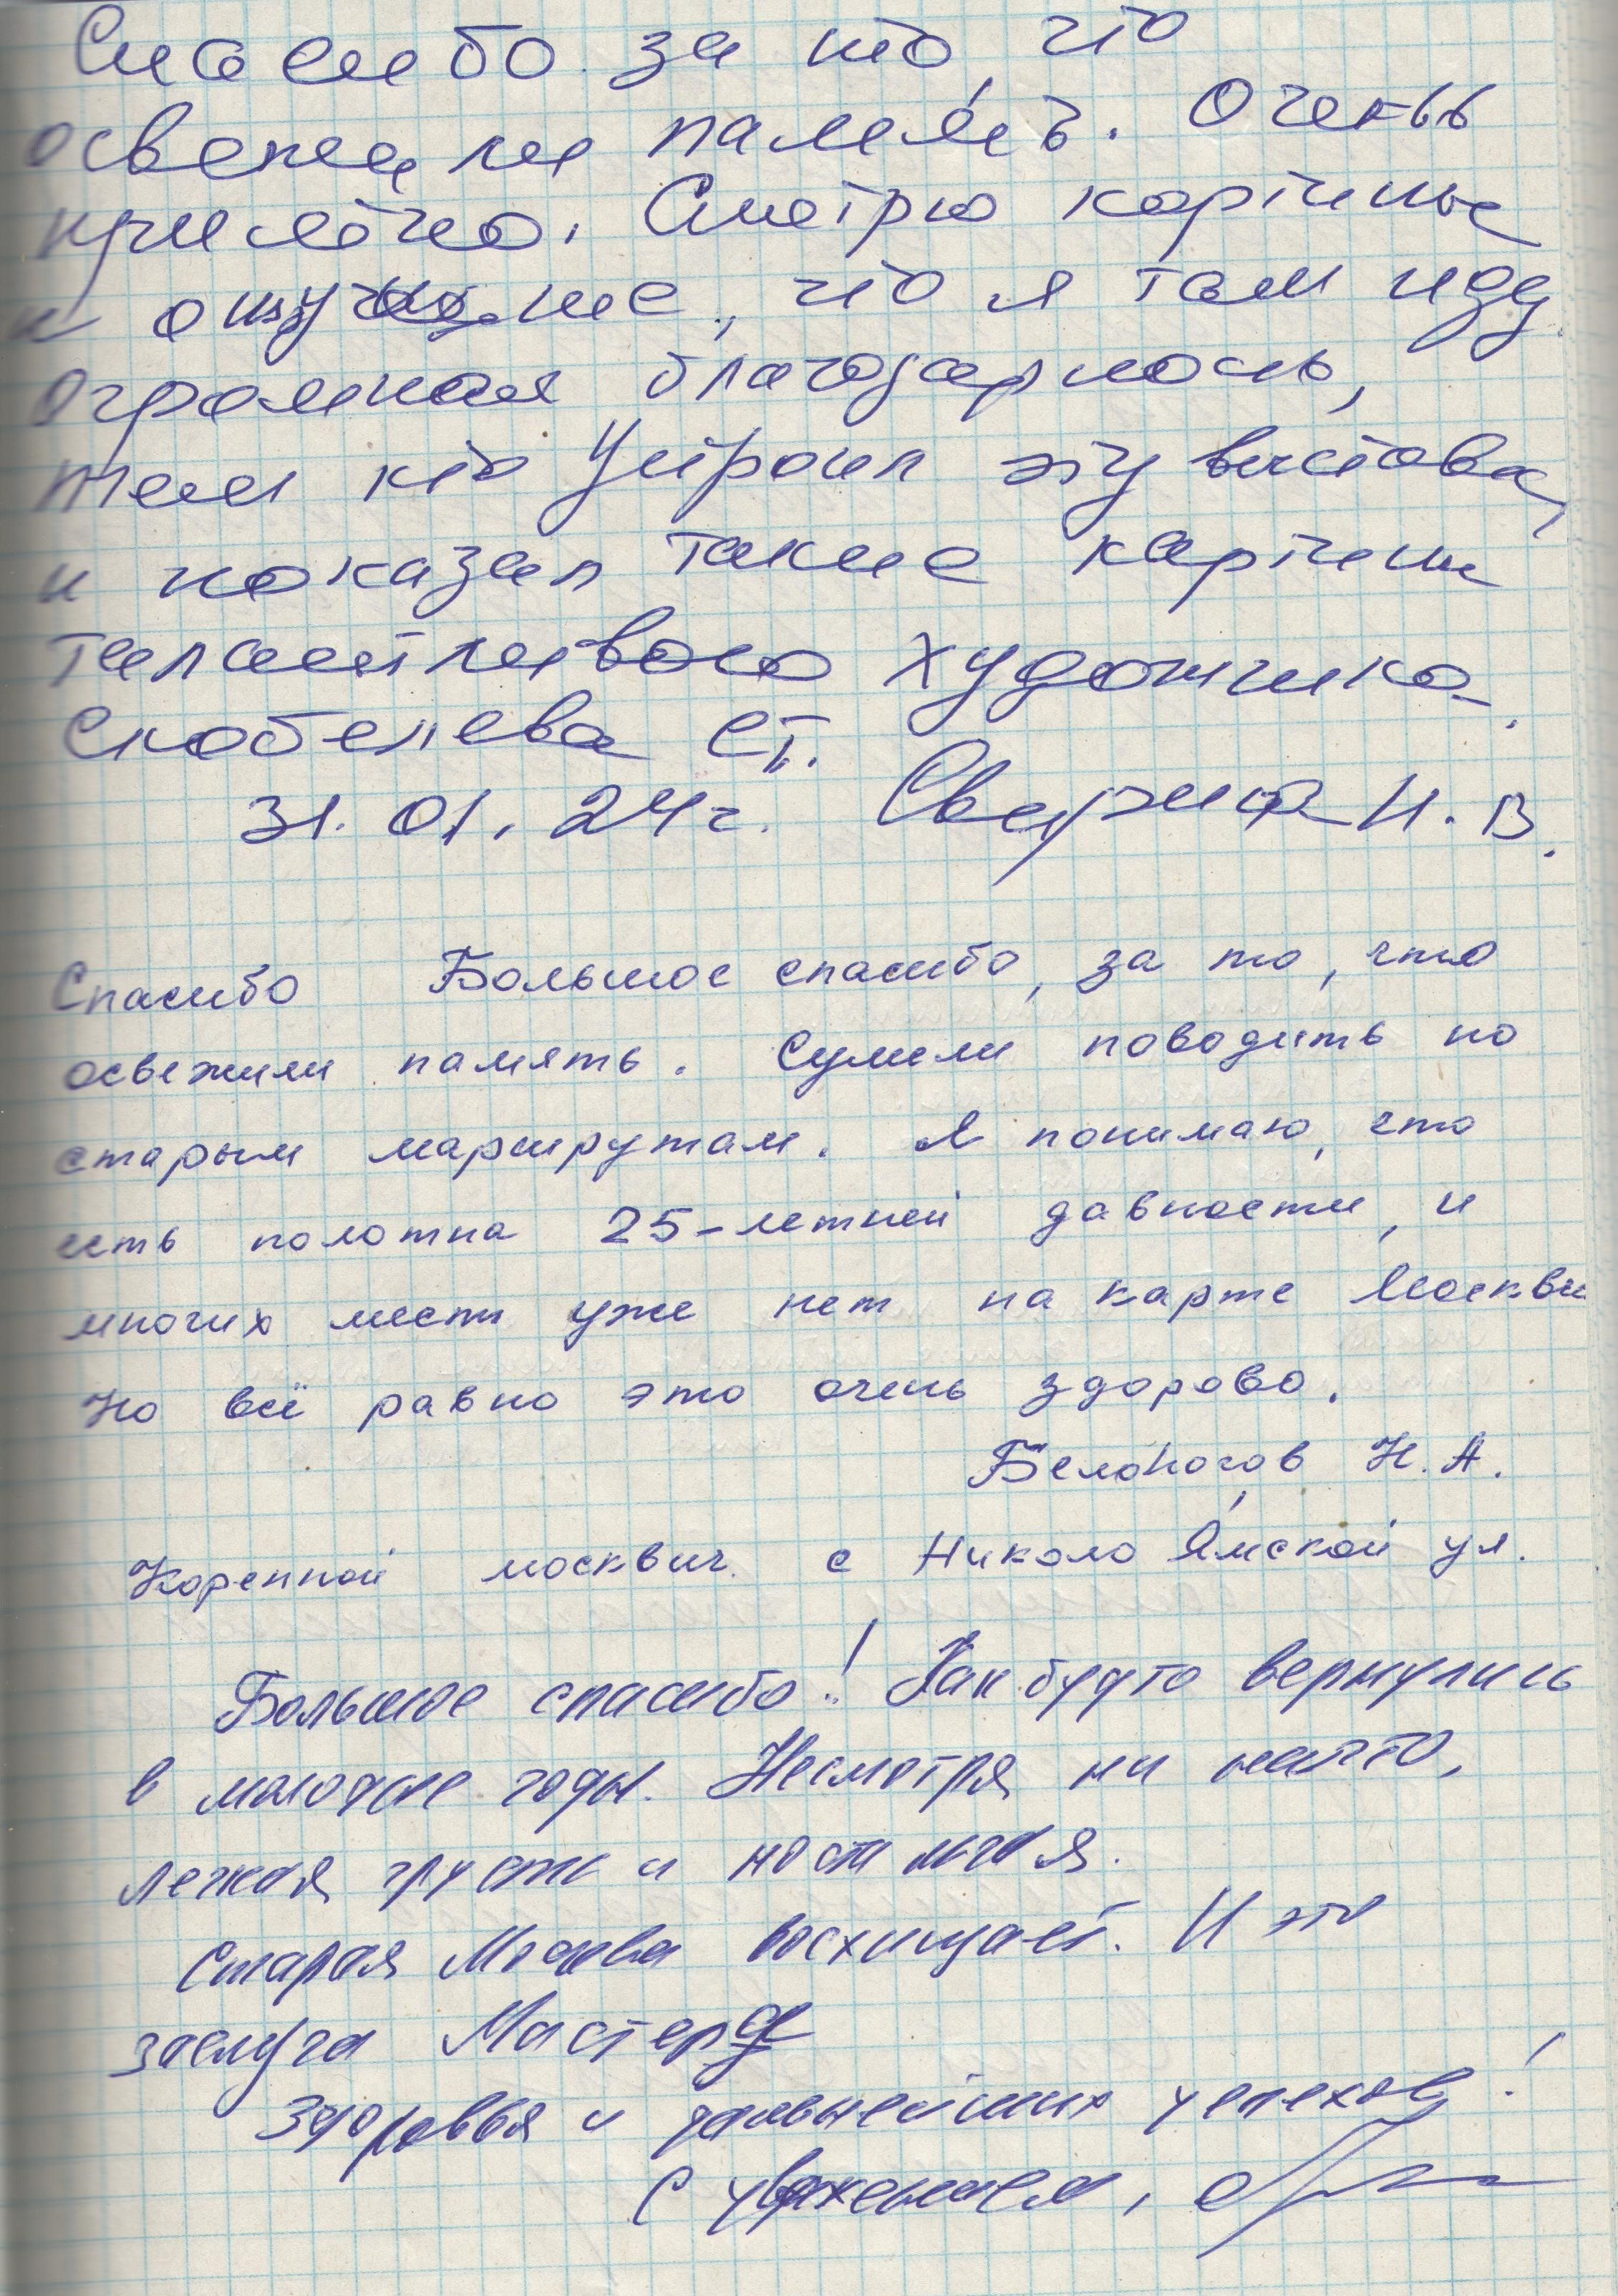 Спасибо за то, что
освежили память. Очень
приятно. Смотрю картины
и ощущение, что я там иду
Огромная благодарность,
тем кто Устроил эту выставку,
и показал такие картины
талантливого художника.
Скобелева СТ.
31.01.24г. Н.В.
Спасибо Большое спасибо, за то, что
освежили память. Сумели поводить по
старым маршрутам. Я понимаю, что
есть полотна 25-летней давности, и
многих мест уже нет на карте Москвы
Но всё равно это очень здорово.
Белоногов Н.А.
Коренной москвич. с Николо Ямской ул.
Большое спасибо! Как будто вернулись
в молодые годы. Несмотря ни на что,
легкая грусть и ностальгия.
Старая Москва восхищает. И это
заслуга Мастера
Здоровья и дальнейших успехов!
С уважением,